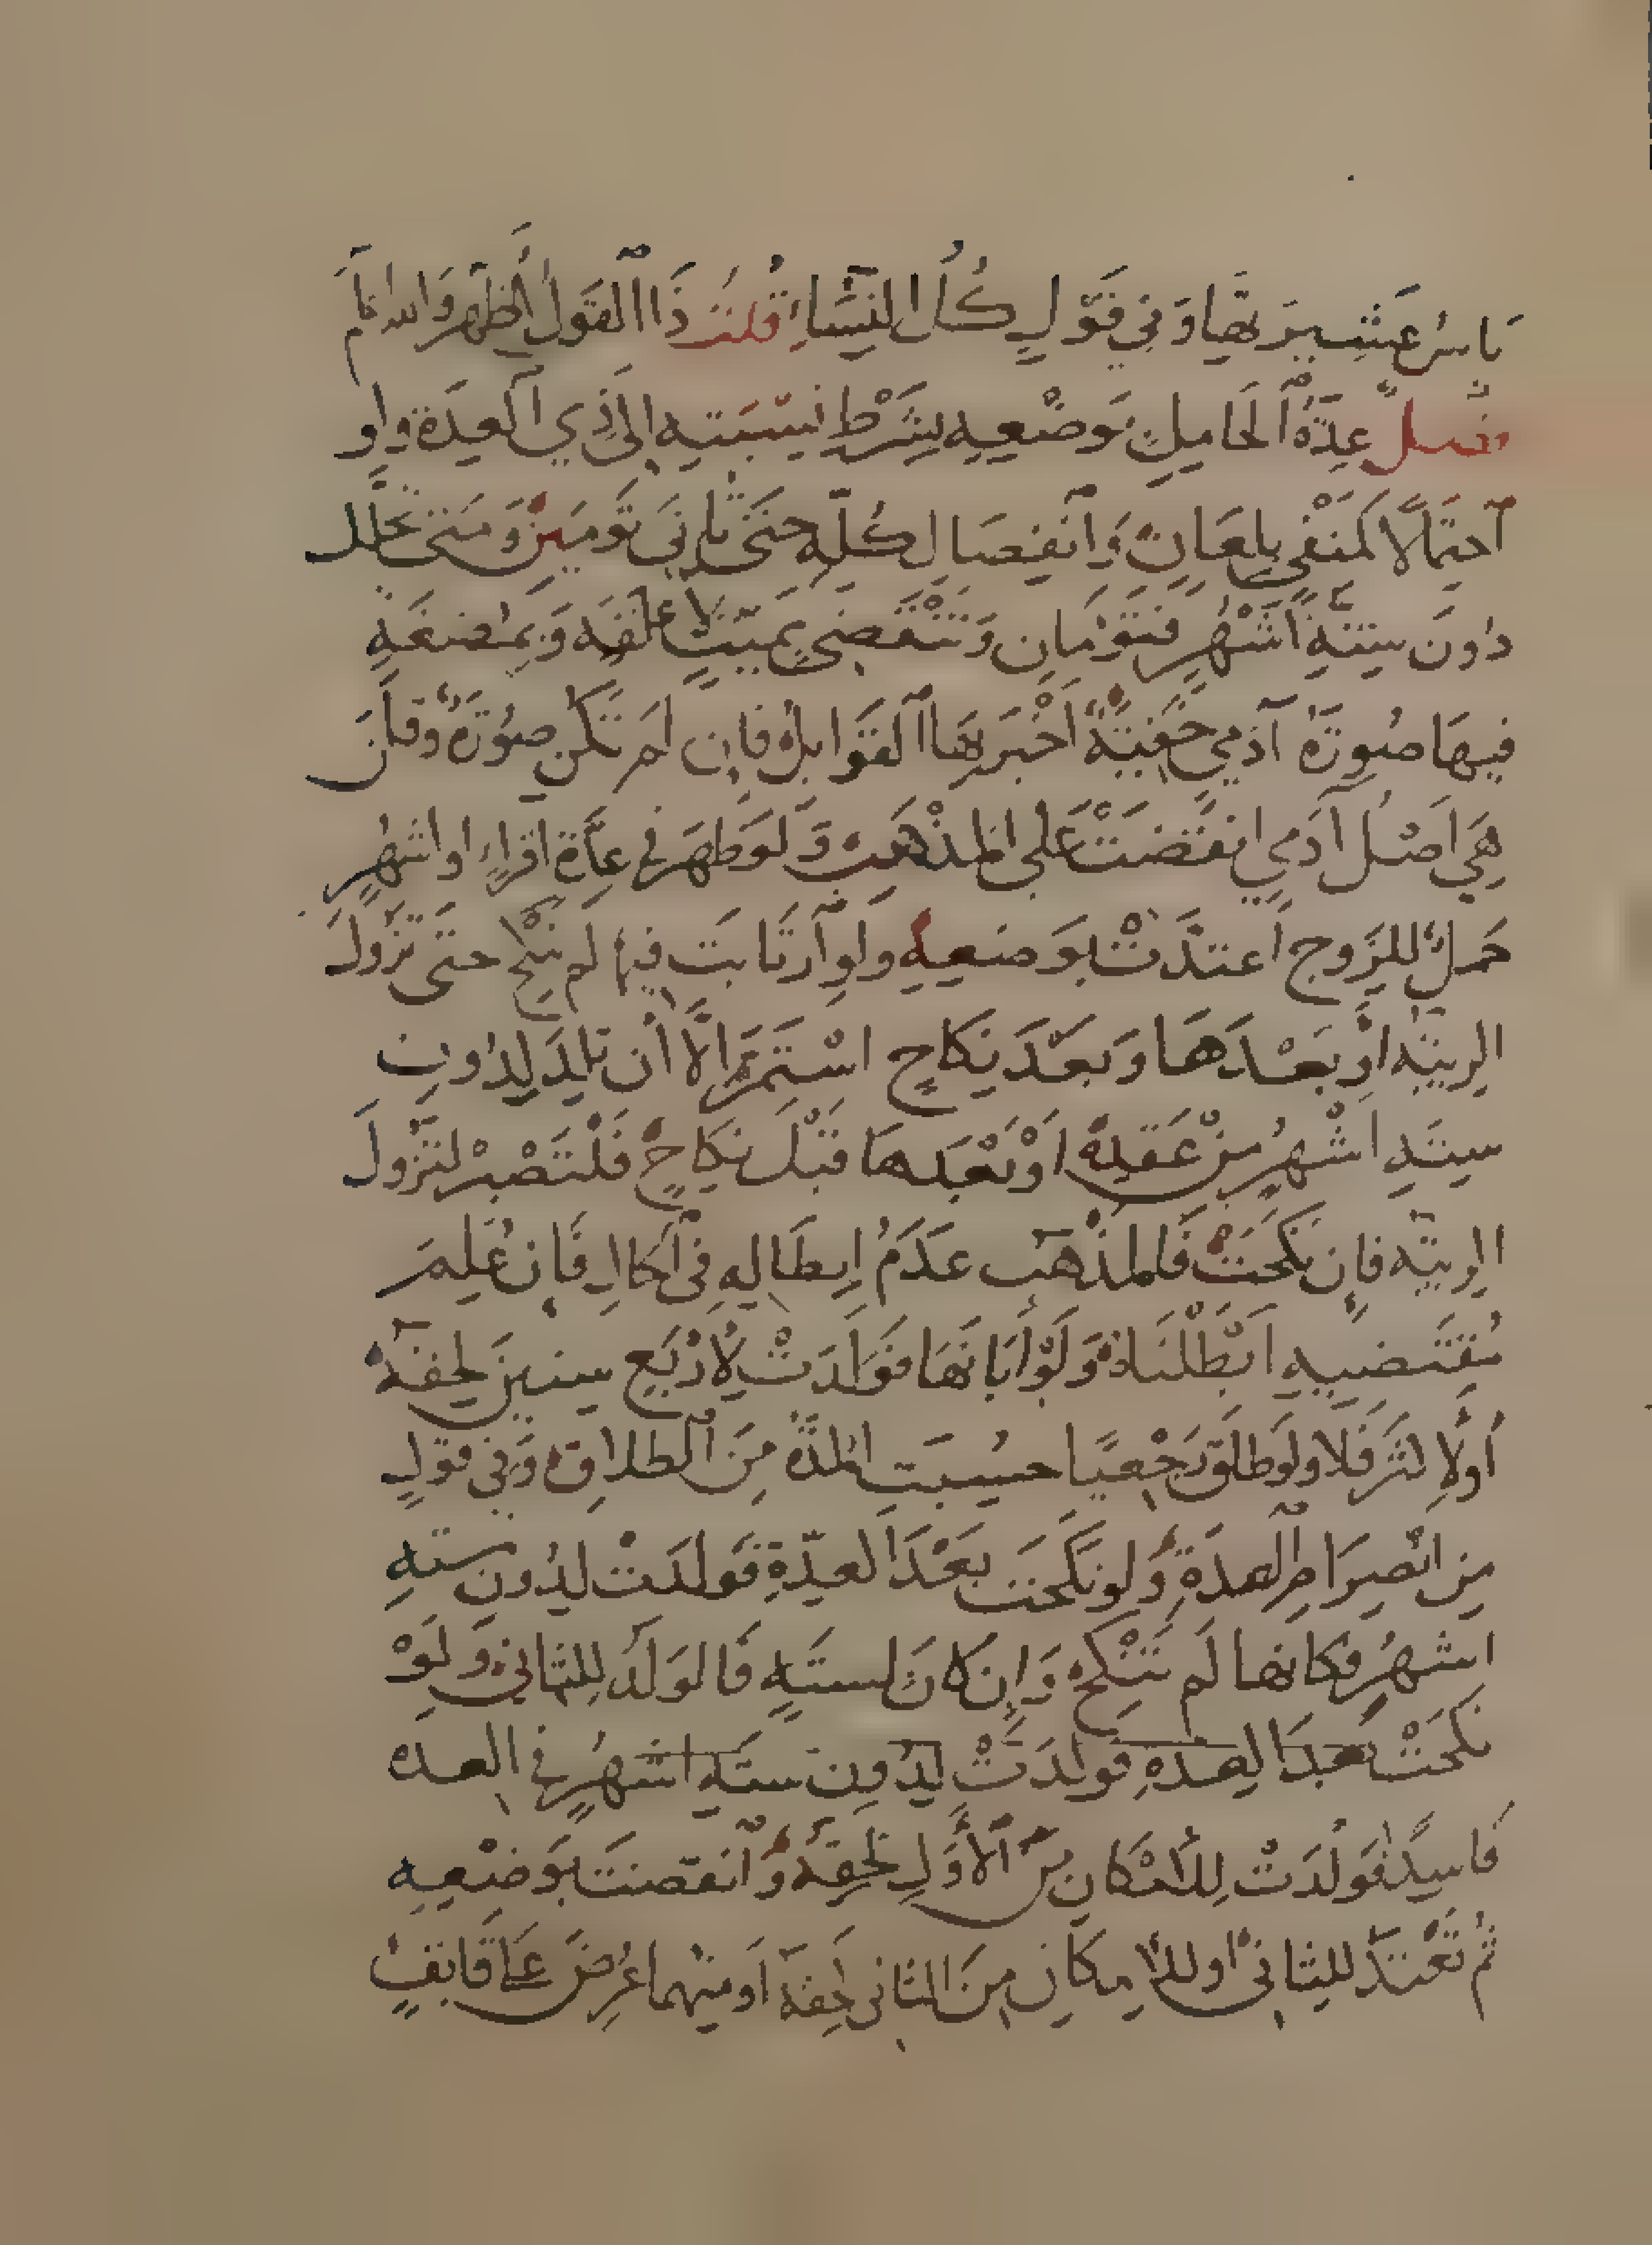 ياس عشيرتها وفي قول كل النساء قلت ذا القول اظهر والله اعلم
فصل عدة الحامل بوضعه بشرط نسبته الى ذي العدة ولو
احتمالا كمنفي بلعان وانفصال كله حتى ثاني تومين ومتى تخلل
دون ستة اشهر فتومان وتنقضي بميت لا علقه وبمضغة
فيها صورة آدمي خفية اخبر بها القوابل فان لم تكن صورة وقلن
هي اصل آدمي انقضت على المذهب ولو ظهر في عدة اقراء او اشهر
حمل للزوج اعتدت بوضعه ولو ارتابت فيها لم تنكح حتى تزول
الريبة او بعدها وبعد نكاح استمر الا ان تلد لدون
ستة اشهر من عقده او بعدها قبل نكاح فلتصبر لتزول
الريبة فان نكحت فالمذهب عدم ابطاله في الحال فان علم
مقتضيه ابطلناه ولو أبانها فولدت لاربع سنين لحقه
أو لاكثر فلا ولو طلق رجعيا حسبت المدة من الطلاق وفي قول
من انصرام العدة ولو نكحت بعد العدة فولدت لدون ستة
اشهر فكانها لم تنكح وان كان لستة فالولد للثاني ولو
نكحت بعد العدة فولدت لدون ستة اشهر في العده
فاسدا فولدت للامكان من الأول لحقه وانقضت بوضعه
ثم تعتد للثاني او للامكان من الثاني لحقه أو منهما عرض على قايف